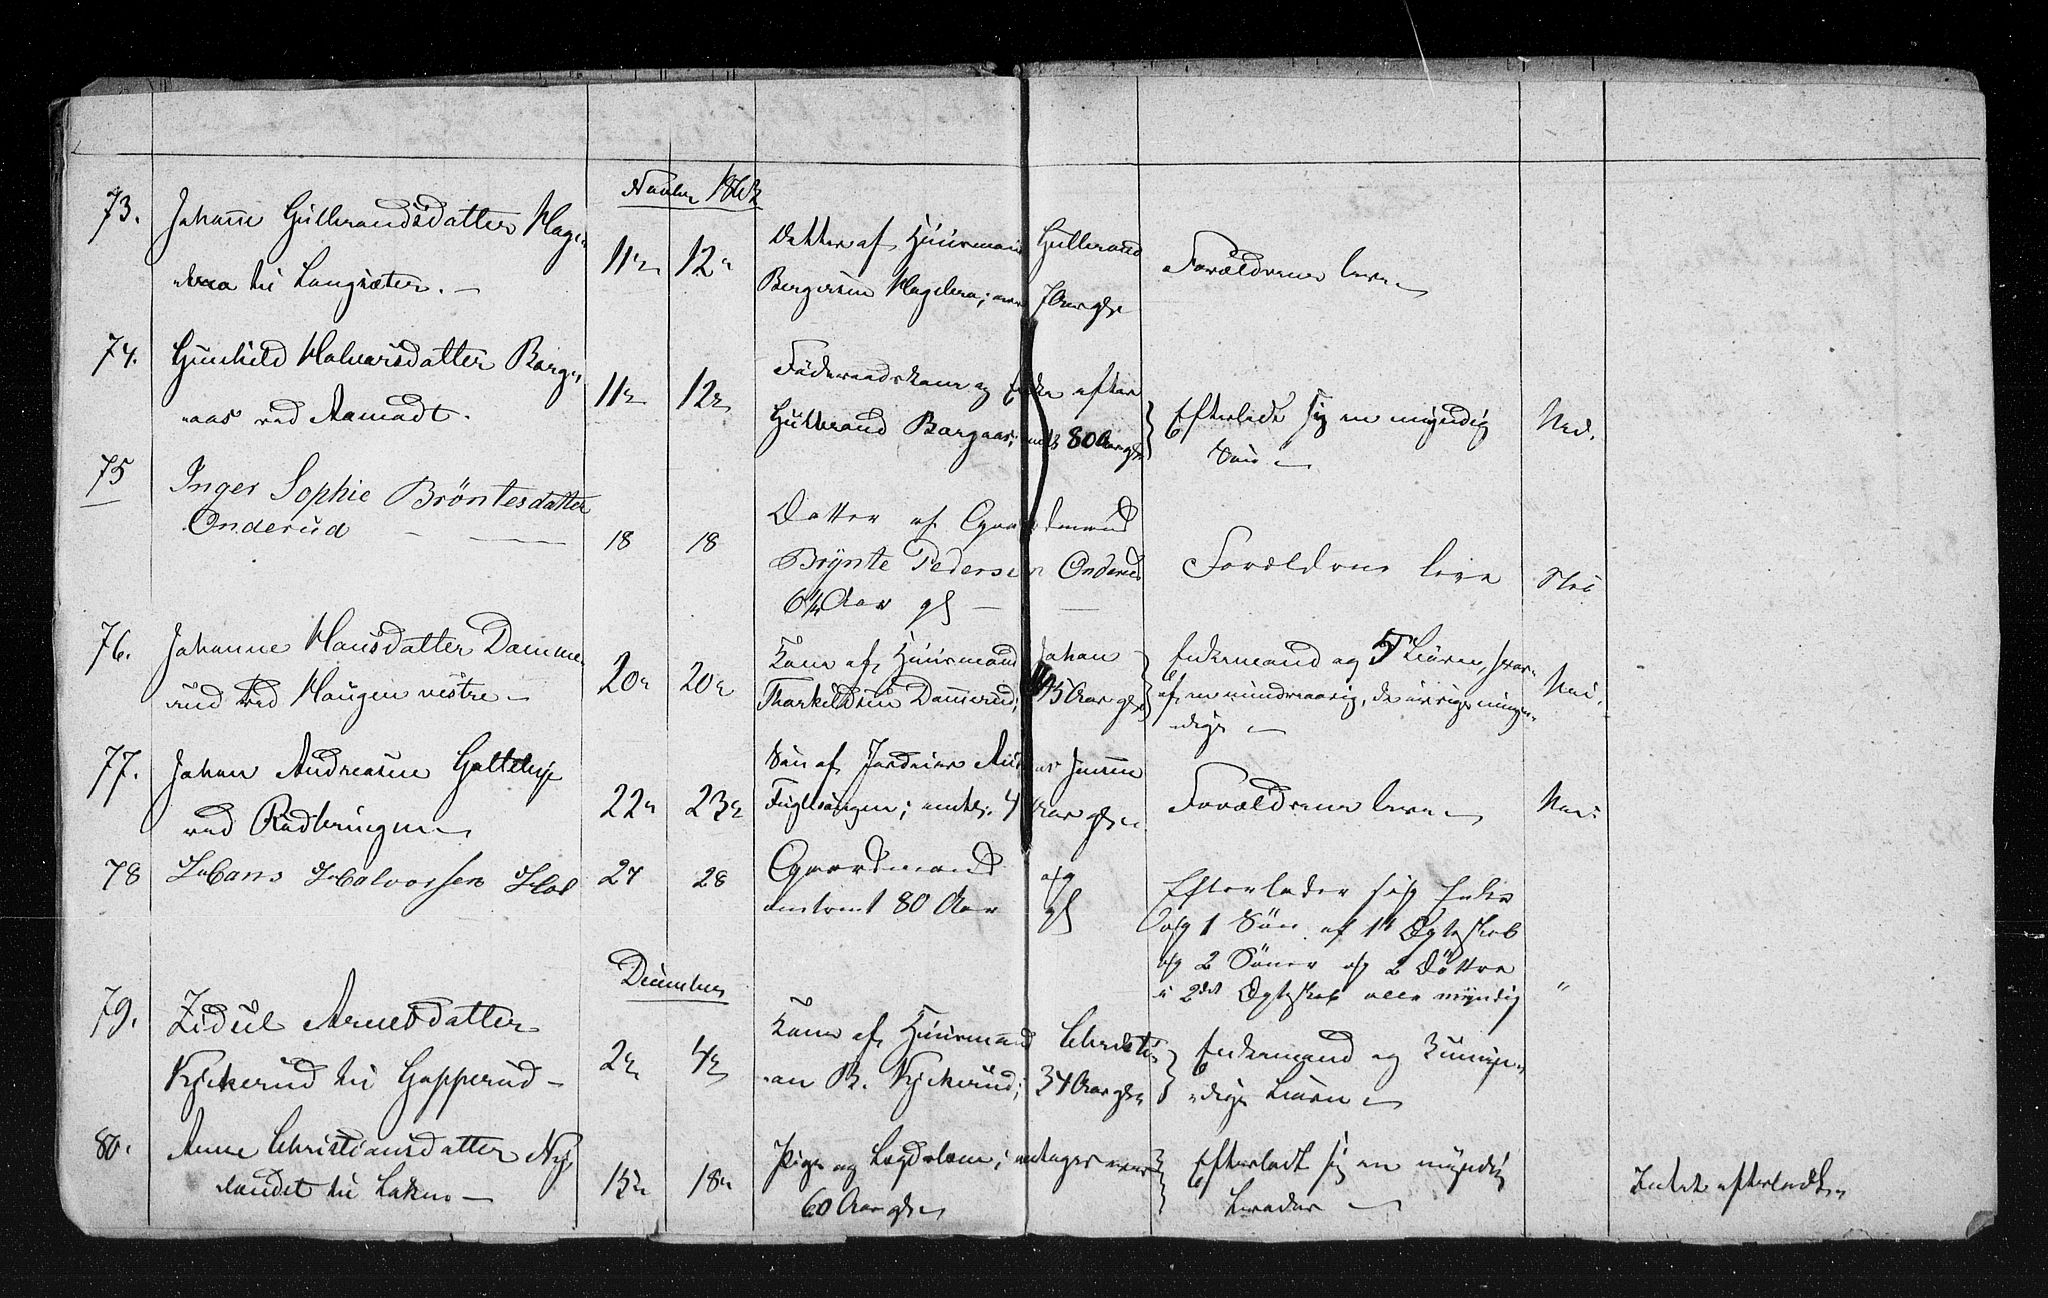 73. Johanne Gulbrandsdatter Hage-
til Langsæter.
11te 12te
Datter af Huusmand Gulbrand
Bergersen Hagebra; 7 Aar gl.
Forældrene leve
74. Gunhild Halvorsdatter Borge-
aas ved Aamodt.
11te 12te
Föderaadskone og Enke efter
Gulbrand Borgaas; 80 Aar gl.
Efterlod sig en myndig
Sön
Nei.
75 Inger Sophie Bröntesdatter
Onderud
18 18
Datter af Gaardmand
Brynte Pedersen Onderud
Aar gl
Forældrene leve
Nei
76. Johanne Hansdatter Damme-
rud ved Haugen vestre
20de 20de
Kone af Huusmand Johan
Thorkildsen Dammerud; Aar gl.
Enkemand og 5 Börn, hvor-
af en mindreaarig, de övrige myn-
dige
Nei.
77. Johan Andreasen
ved
22de 23de
Sön af Jordeier Andreas Jensen
Fuglesangen; omtr. 4 Aar gl.
Forældrene leve
Nei
78 Hans Halvorsen Hol
24 28
Gaardmand og
omtrent 80 Aar gl
Efterlader sig Enke
og 1 Sön af 1st Ægteskab
og 2 Söner og 2 Döttre
i 2det Ægteskab alle myndig
"
December
79. Zidsel Arnesdatter
Nyckerud til Gopperud
2den 4de
Kone af Huusmand Christi-
an B. Nyckerud; 34 Aar gl.
Enkemand og 2 umyn-
dige Börn
80. Anne Christiansdatter Ny-
landet til
15de 18de
Pige og Lægdslem; antages være
60 Aar gl.
Efterladt sig en myndig
Broder
Intet efterladt